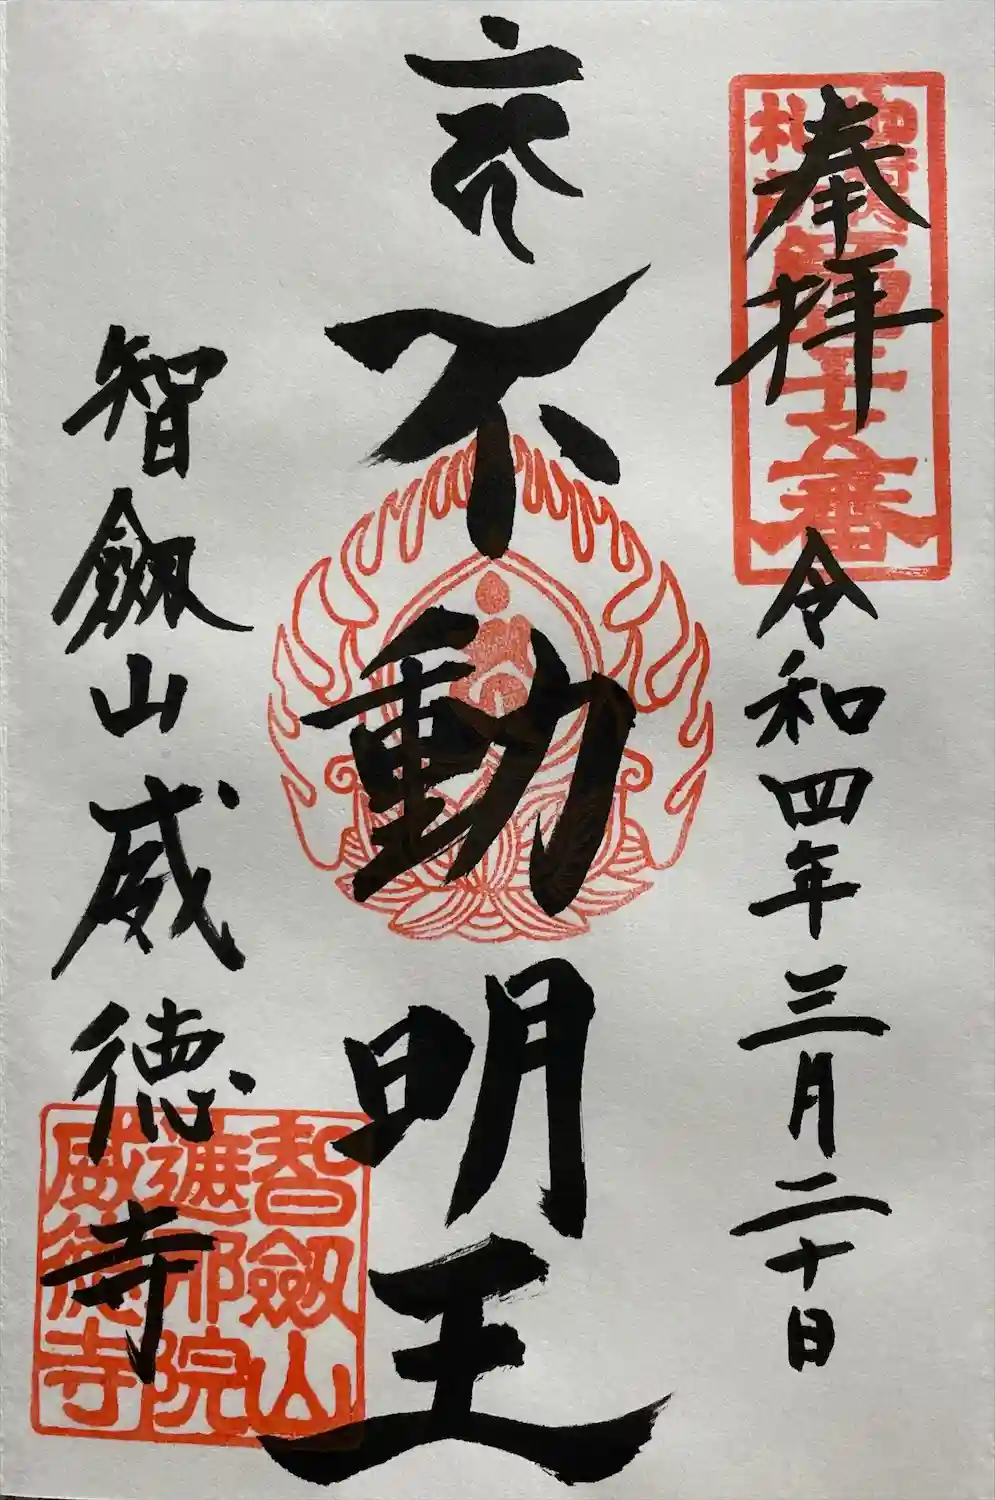 奉拝
令和四年三月二十日
不動明王
智劔山
威徳寺
十五番
智劔山
遮那院
威徳寺